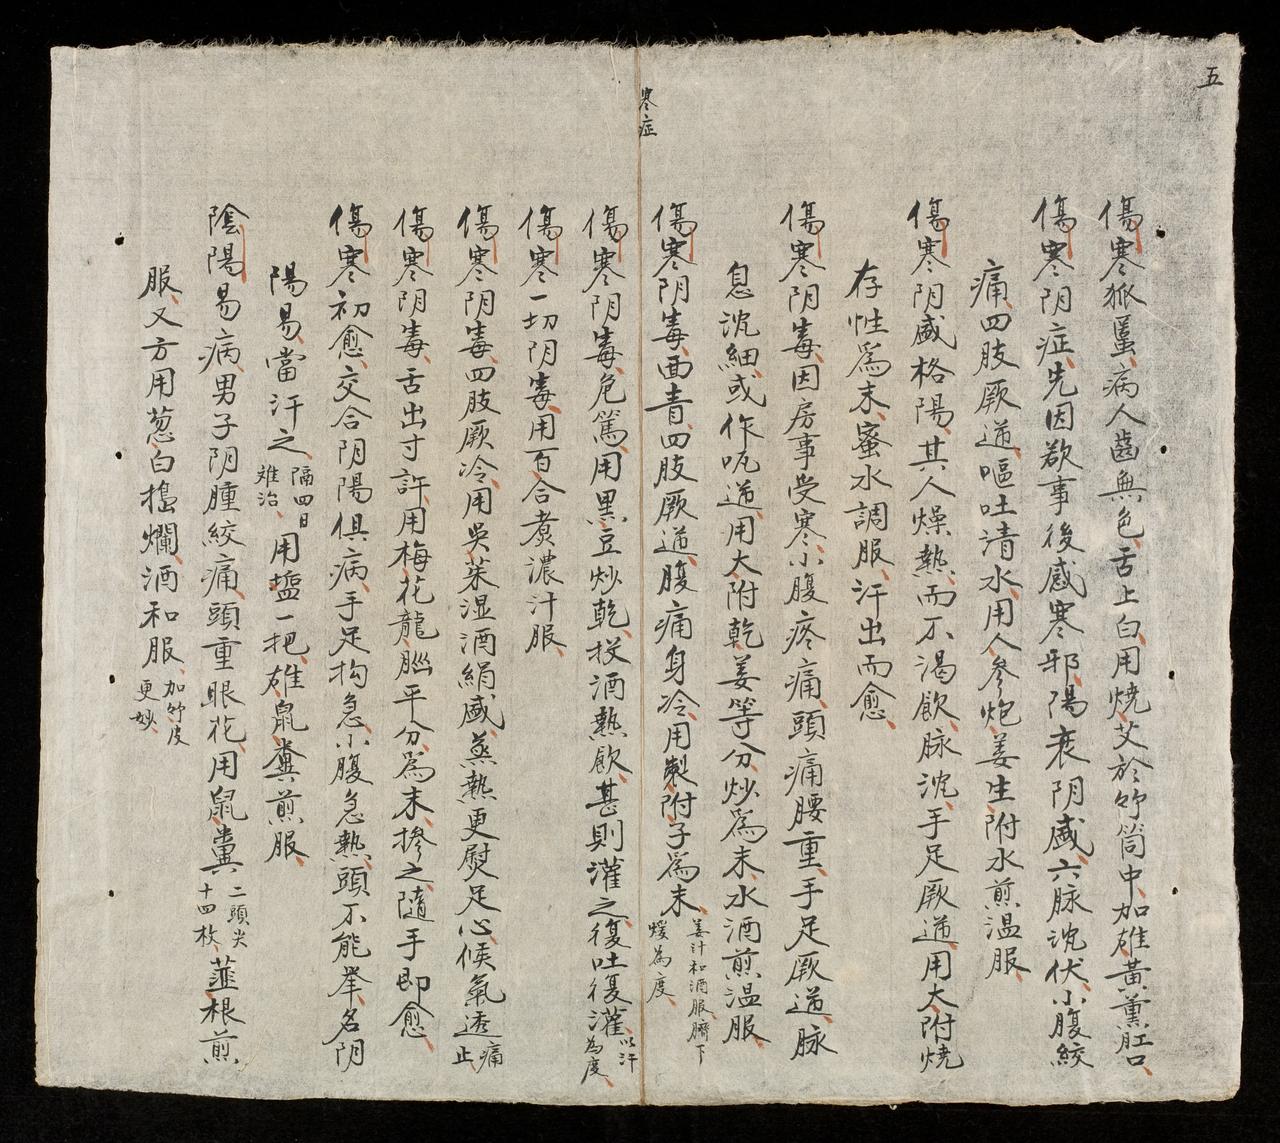 五
傷寒狐䘌、病人齒無色、舌上白、用燒艾於竹筒中、加雄黃薰肛口、
傷寒阴症、先因慾事後感寒邪、陽衰阴盛、六脉沈伏、小腹絞
痛、四肢厥逆、嘔吐清水、用人參炮姜生附水煎温服、
傷寒阴盛格陽、其人燥熱、而不渴飲、脉沈、手足厥逆、用大附燒
存性爲末、蜜水調服、汗出而愈、
傷寒阴毒、因房事受寒、小腹疼痛、頭痛腰重、手足厥逆、脉
息沈細、或作呃逆、用大附乾姜等分、炒爲末、水酒煎温服、
寒症
傷寒阴毒、面青、四肢厥逆、腹痛身冷、用製附子爲末、
姜汁和酒服、臍下
煖為度、
傷寒阴毒、危篤、用黑豆炒乾、投酒熱飲、甚則灌之、復吐復灌、
以汗
為度、
傷寒一切阴毒、用百合煮濃汁服、
傷寒阴毒、四肢厥冷、用吳茱湿酒絹盛蒸熱更熨足心、候氣透
痛
止、
傷寒阴毒、舌出寸許、用梅花龍腦平分、爲末、摻之、隨手即愈、
傷寒初愈、交合阴陽俱病、手足拘急、小腹急熱、頭不能舉、名阴
陽易、當汗之、
隔四日
难治、
用塩一把、雄鼠糞煎服、
陰陽易病、男子阴腫絞痛、頭重眼花、用鼠糞
二頭尖
十四枚、
韮根煎
服、又方用葱白搗爛、酒和服、
加竹皮
更妙、